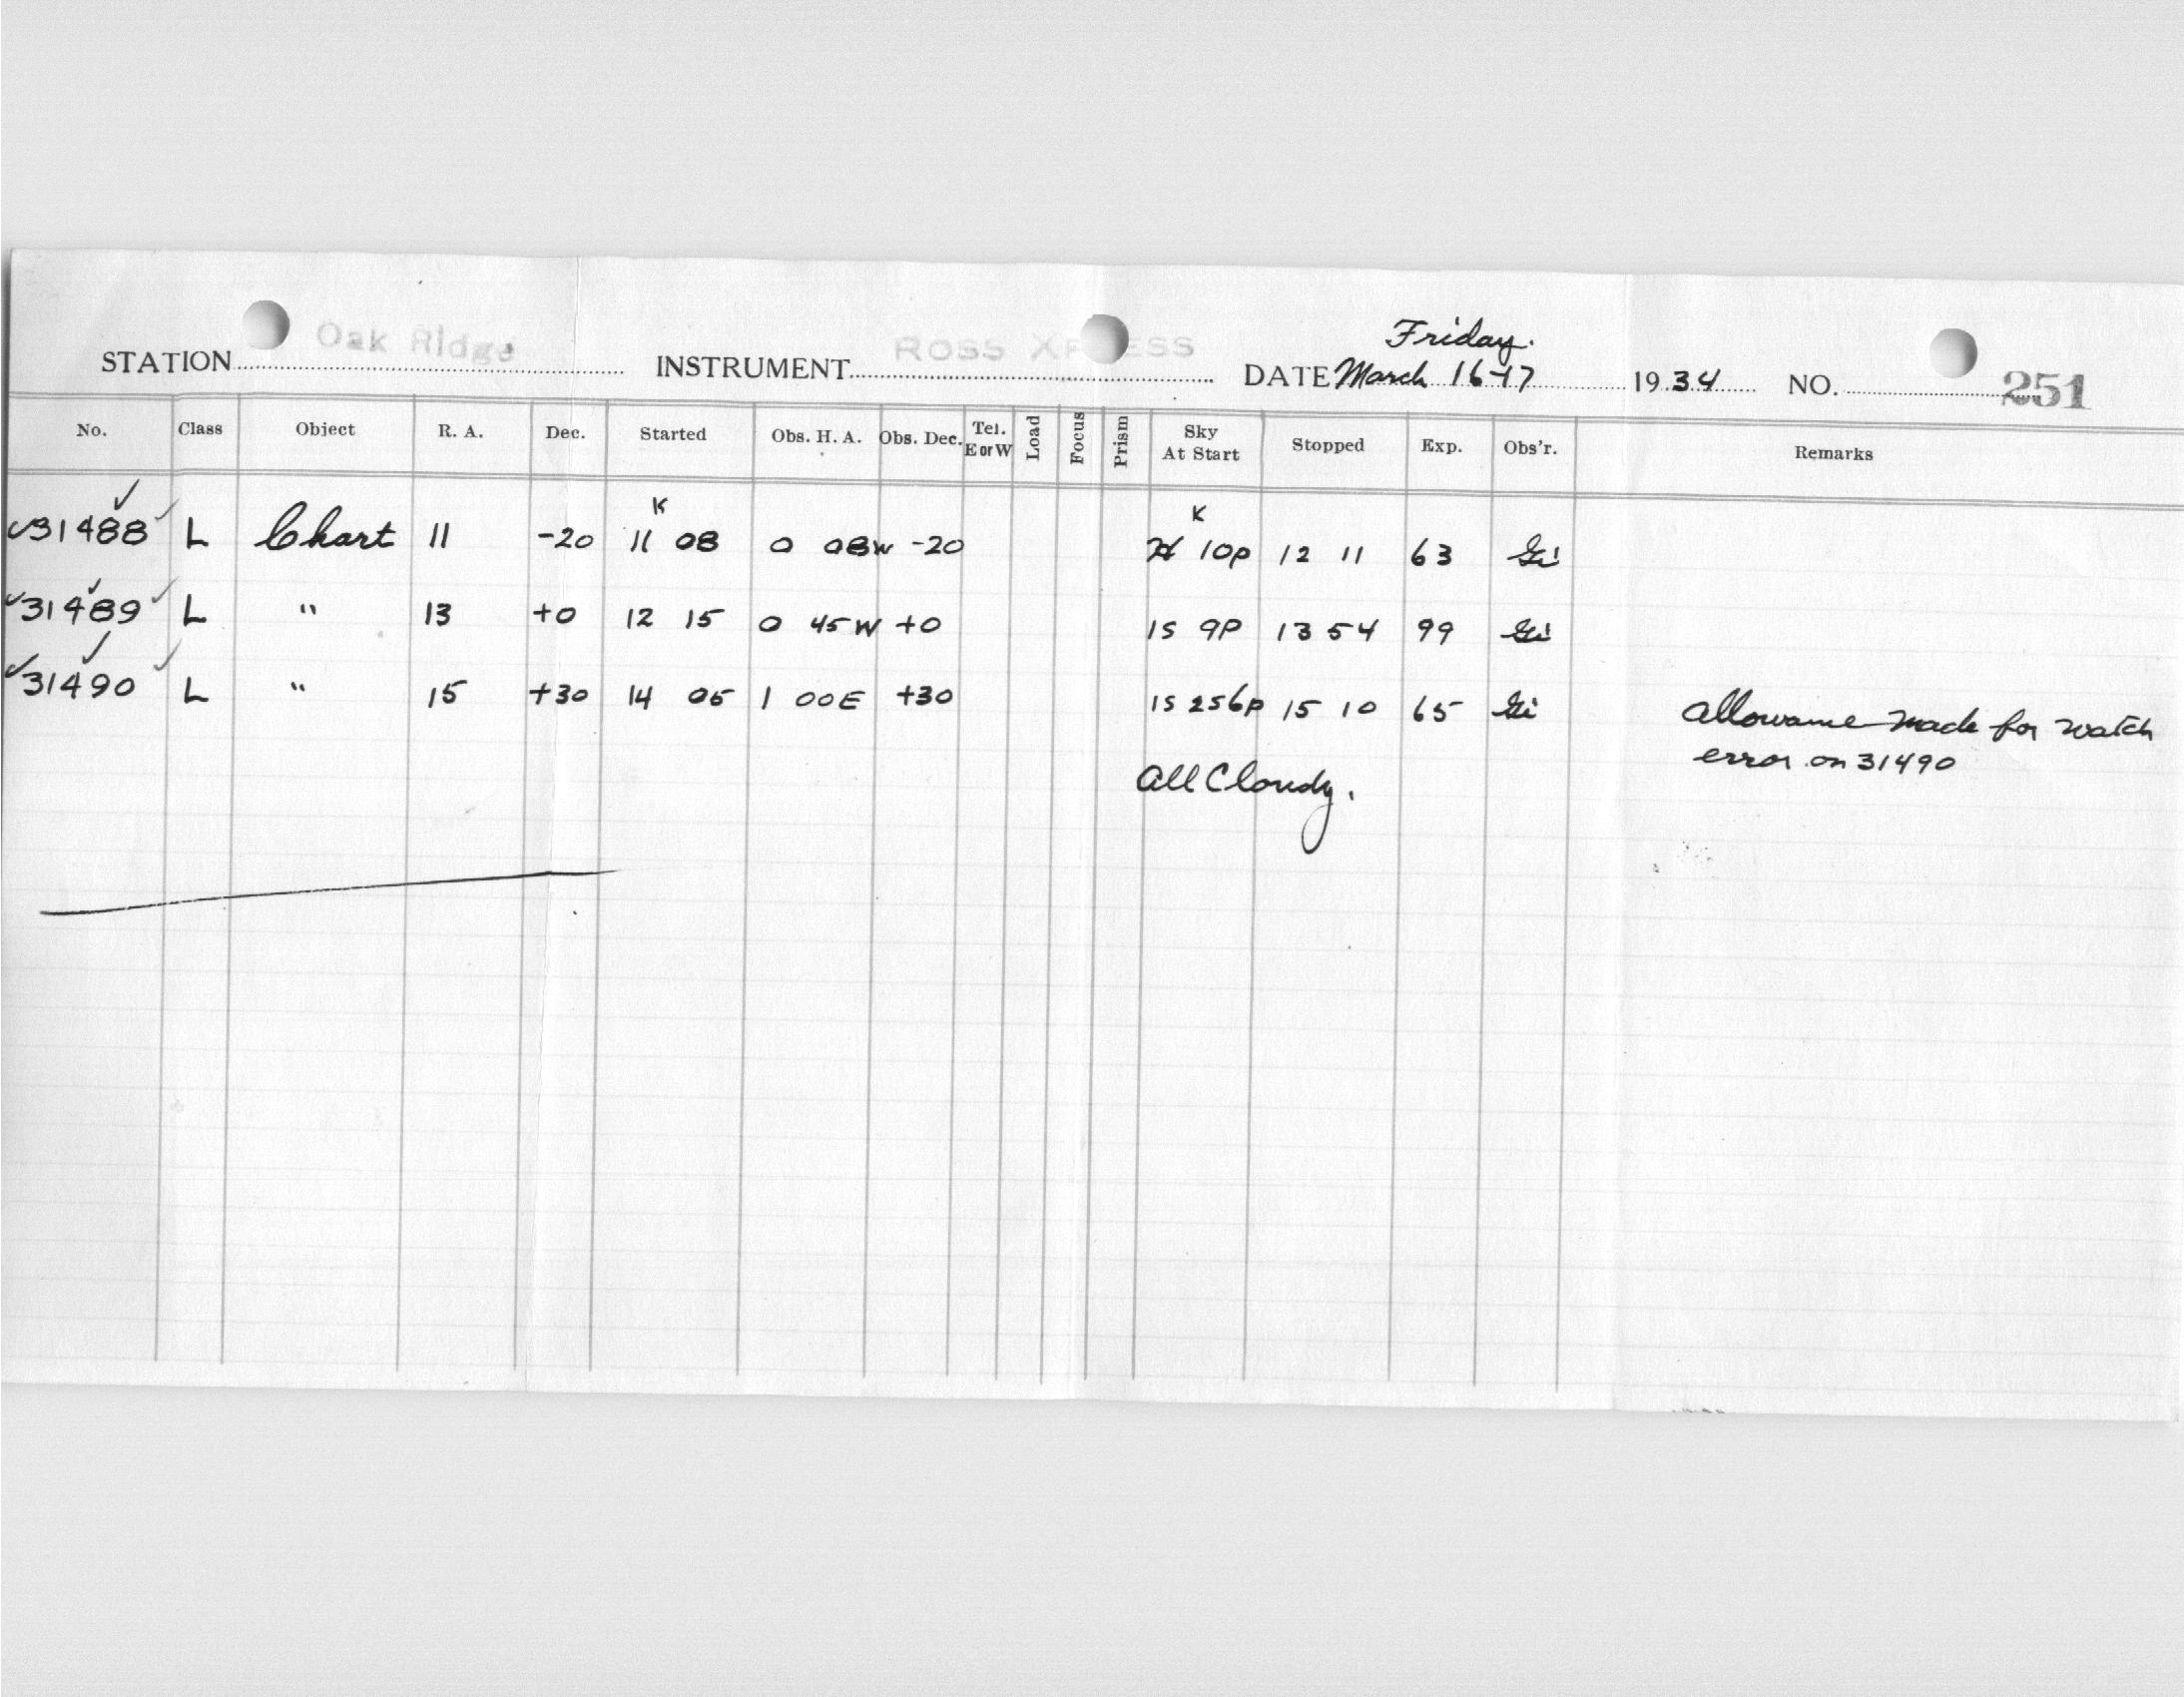 Friday.
STATION Oak Ridge INSTRUMENT ROSS XPRESS DATE March 16-17 1934 NO. 251
No. Class Object R. A. Dec. Started Obs. H. A. Obs. Dec. Tel. E or W Load Focus Prism Sky At Start Stopped Exp. Obs'r. Remarks
K K
31488 L Chart 11 -20 11 08 0 08W -20 10p 12 11 63 Gi
31489 L " 13 +0 12 15 0 45W +0 1s 9P 13 54 99 Gi
31490 L " 15 +30 14 05 1 00E +30 1s 256p 15 10 65 Gi allowance made for watch
error on 31490
all Cloudy.